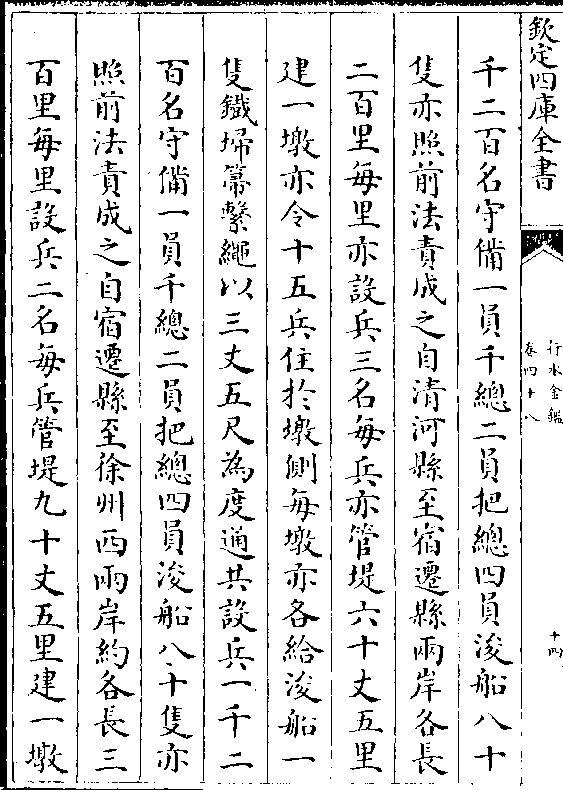 欽定四庫全書
行水金鑑
卷四十八
十四
千二百名守備一員千總二員把總四員浚船八十
隻亦照前法責成之自清河縣至宿遷縣兩岸各長
二百里每里亦設兵三名每兵亦管堤六十丈五里
建一墩亦令十五兵住於墩側每墩亦各給浚船一
隻鐵埽箒繫繩以三丈五尺為度通共設兵一千二
百名守備一員千總二員把總四員浚船八十隻亦
照前法責成之自宿遷縣至徐州西兩岸約各長三
百里每里設兵二名每兵管堤九十丈五里建一墩